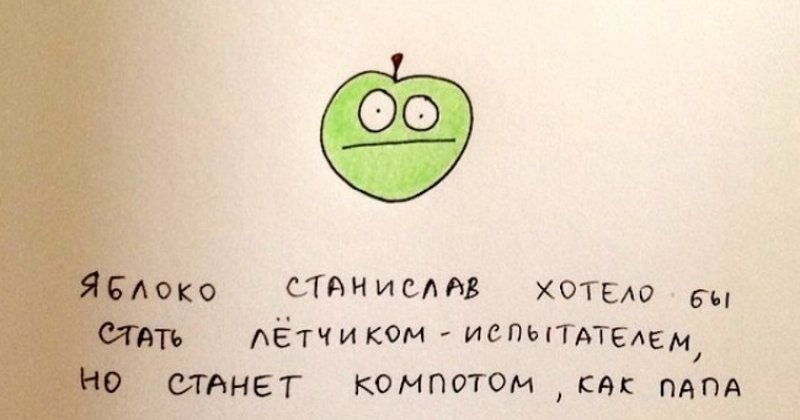 ЯБЛОКО СТАНИСЛАВ ХОТЕЛО БЫ
СТАТЬ ЛЁТЧИКОМ - ИСПЫТАТЕЛЕМ,
НО СТАНЕТ КОМПОТОМ, КАК ПАПА